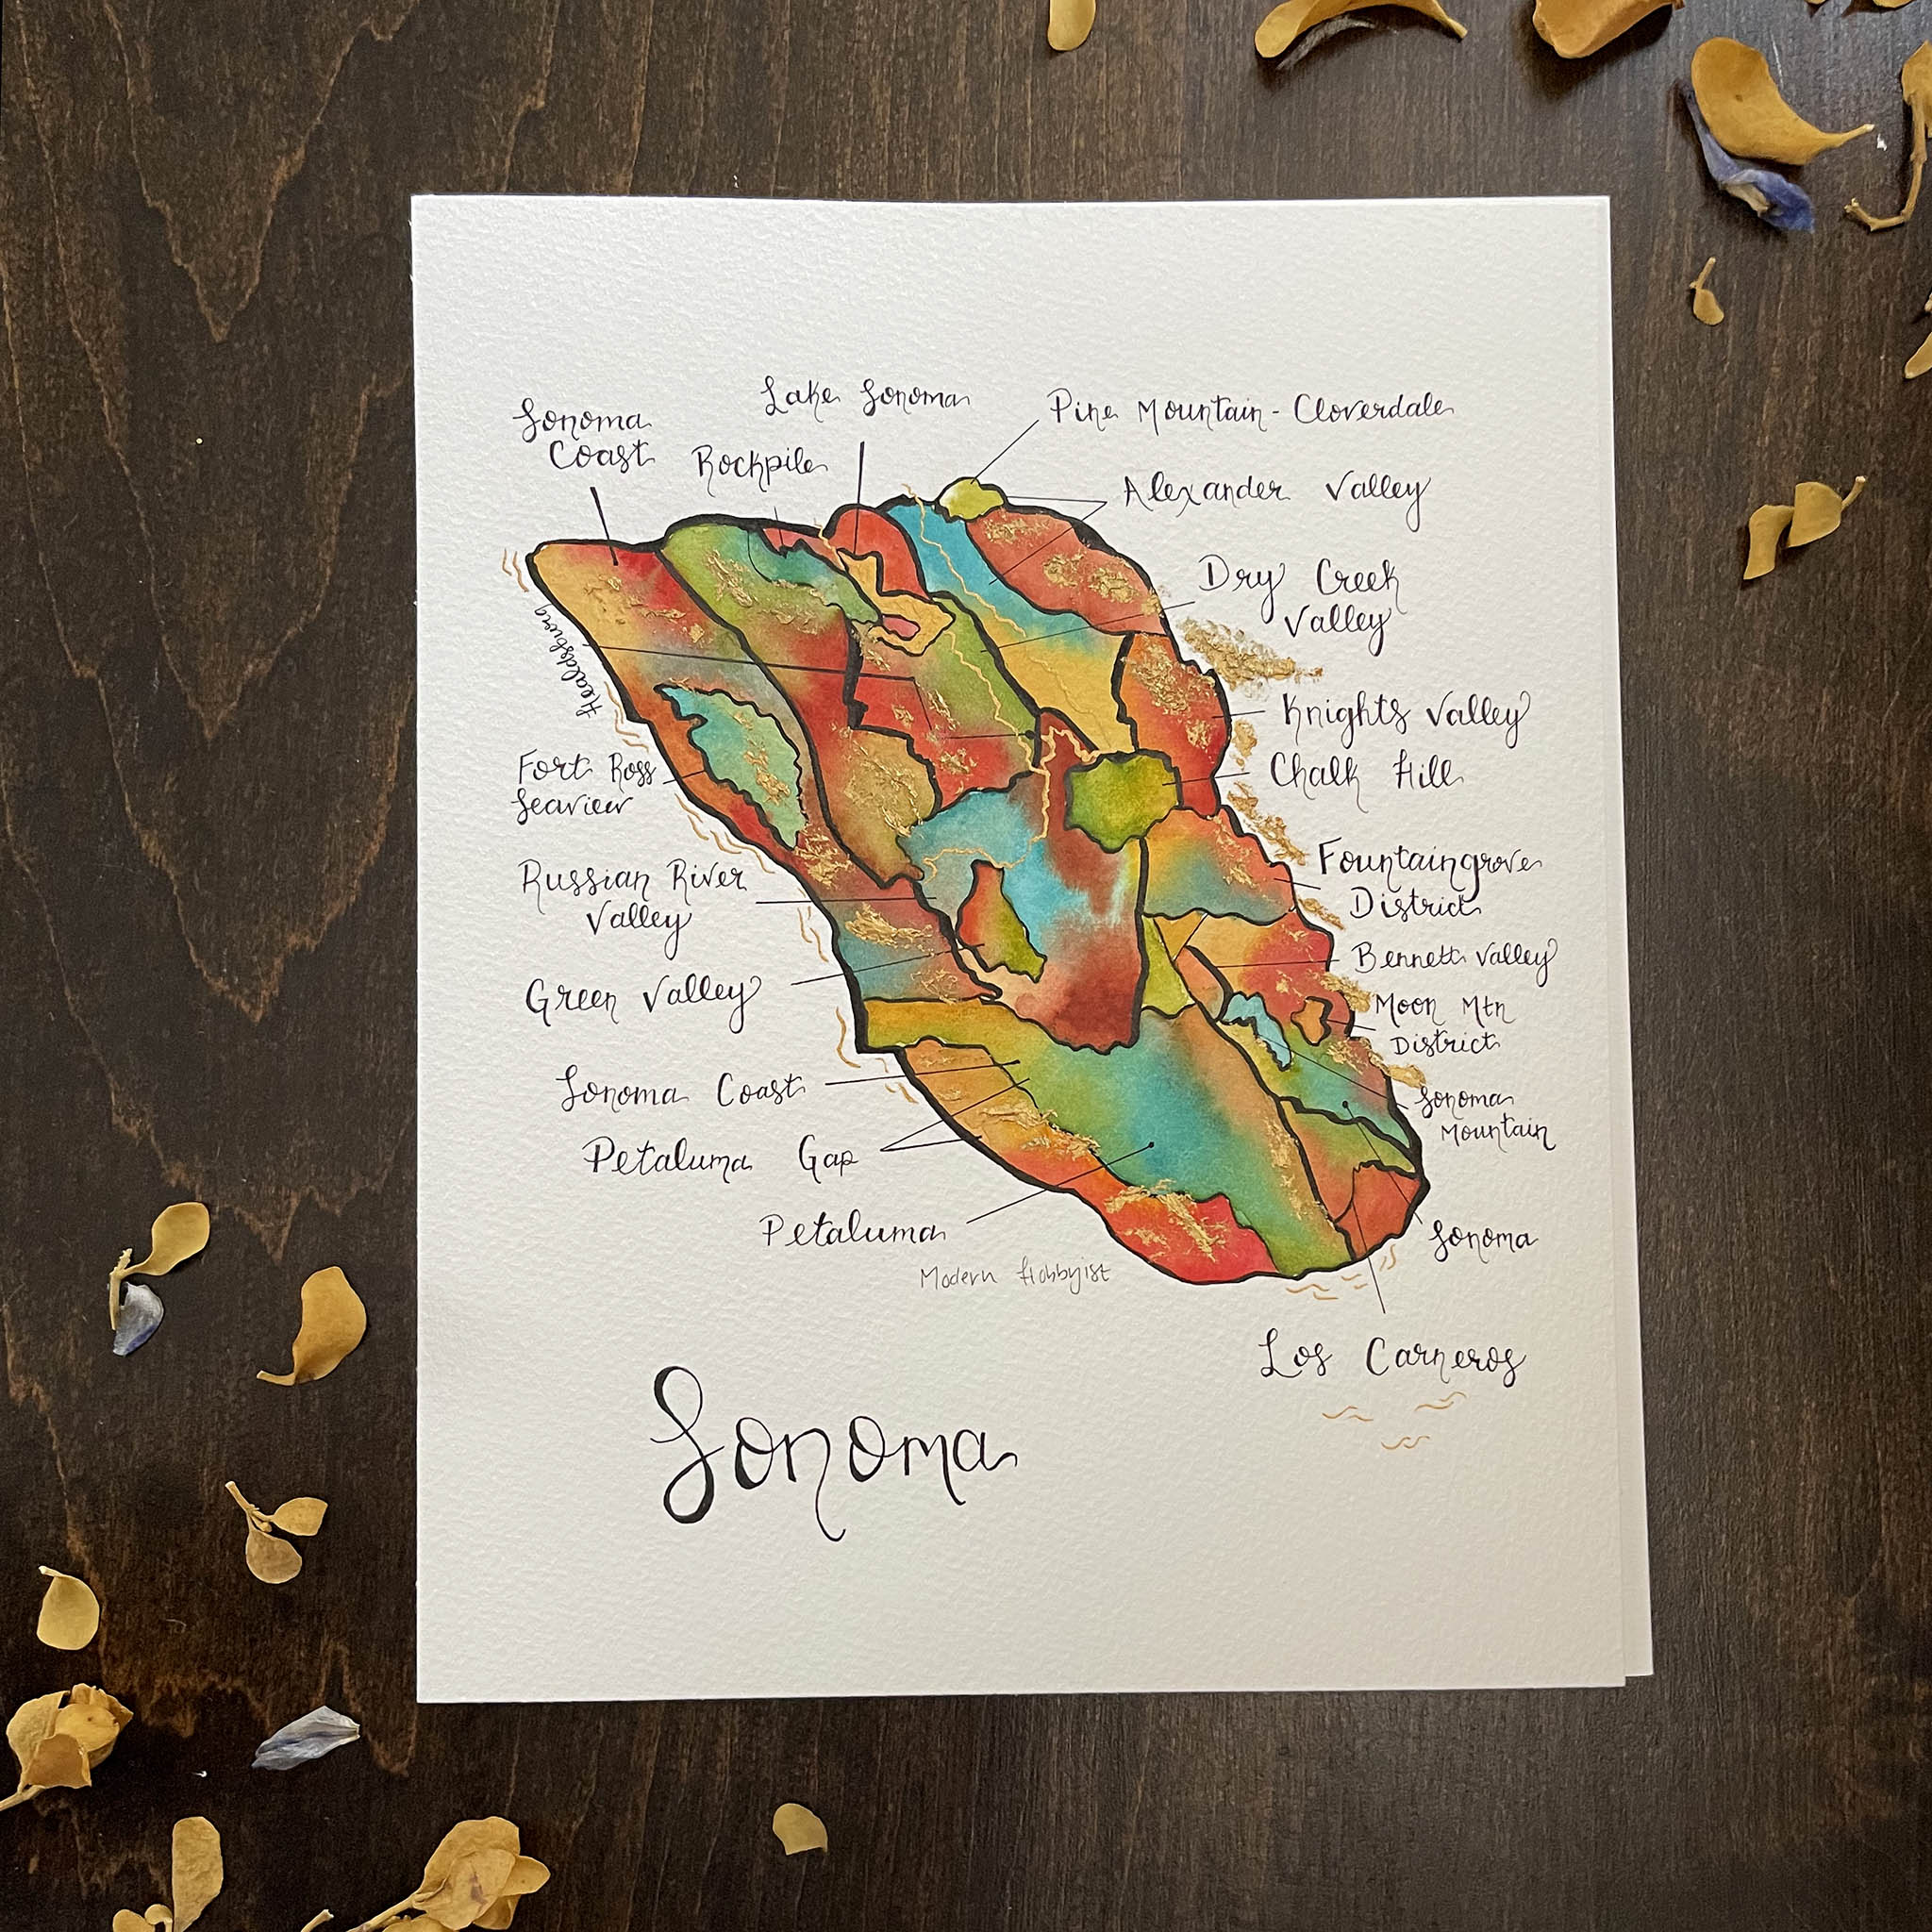 Lake Sonoma
Pine Mountain - Cloverdale
Sonoma
Coast
Rockpile
Alexander Valley
Dry Creek
Valley
Healdsburg
Knights Valley
Fort Ross
Seaview
Chalk Hill
Russian River
Valley
Fountaingrove
District
Green Valley
Bennett Valley
Moon Mtn
District
Sonoma Coast
Sonoma
Mountain
Petaluma Gap
Petaluma
Sonoma
Modern Hobbyist
Los Carneros
Sonoma